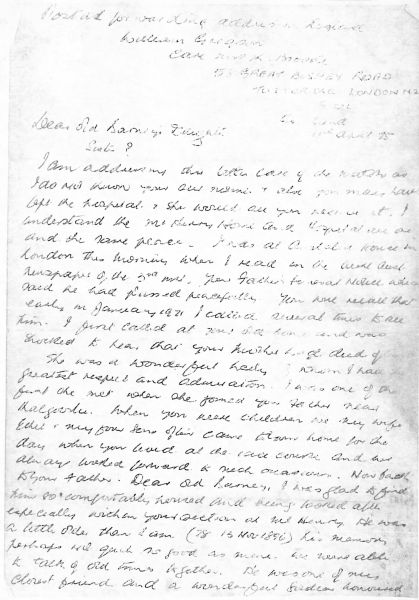 Postal forwarding address England
William
Care Mrs K. Brooks
GREAT BUSHEY ROAD
LONDON N2
April 75
Dear Old Barney's
Sister?
I am addressing this letter care of the Matron as
I do not know your name & also you may have
left the hospital & she would see you receive it. I
understand the Mt Henry Home and Hospital are one
and the same place. I was at Australia House in
London this morning when I read in the West Aust
Newspaper of the 3rd inst. your Father's funeral notice which
said he had passed peacefully. You may recall that
early in January 1971 I called several times to see
him. I first called at your old home and was
shocked to hear that your Mother had died
She was a wonderful lady whom I had
greatest respect and admiration. I was one of the
first she met when she joined your Father near
Kalgoorlie. When you were children my wife
Ethel & my four sons often came to your home for the
day when you lived at the race course and we
always looked forward to such occasions. Now back
to your Father. Dear Old Barney, I was glad to find
him so comfortably housed and being looked after
especially within your section at Mt Henry. He was
a little older than I am (78 13 Nov 1896) his memory
perhaps not quite so good as mine. We were able
to talk of old times together. He was one of my
closest friend and a wonderful